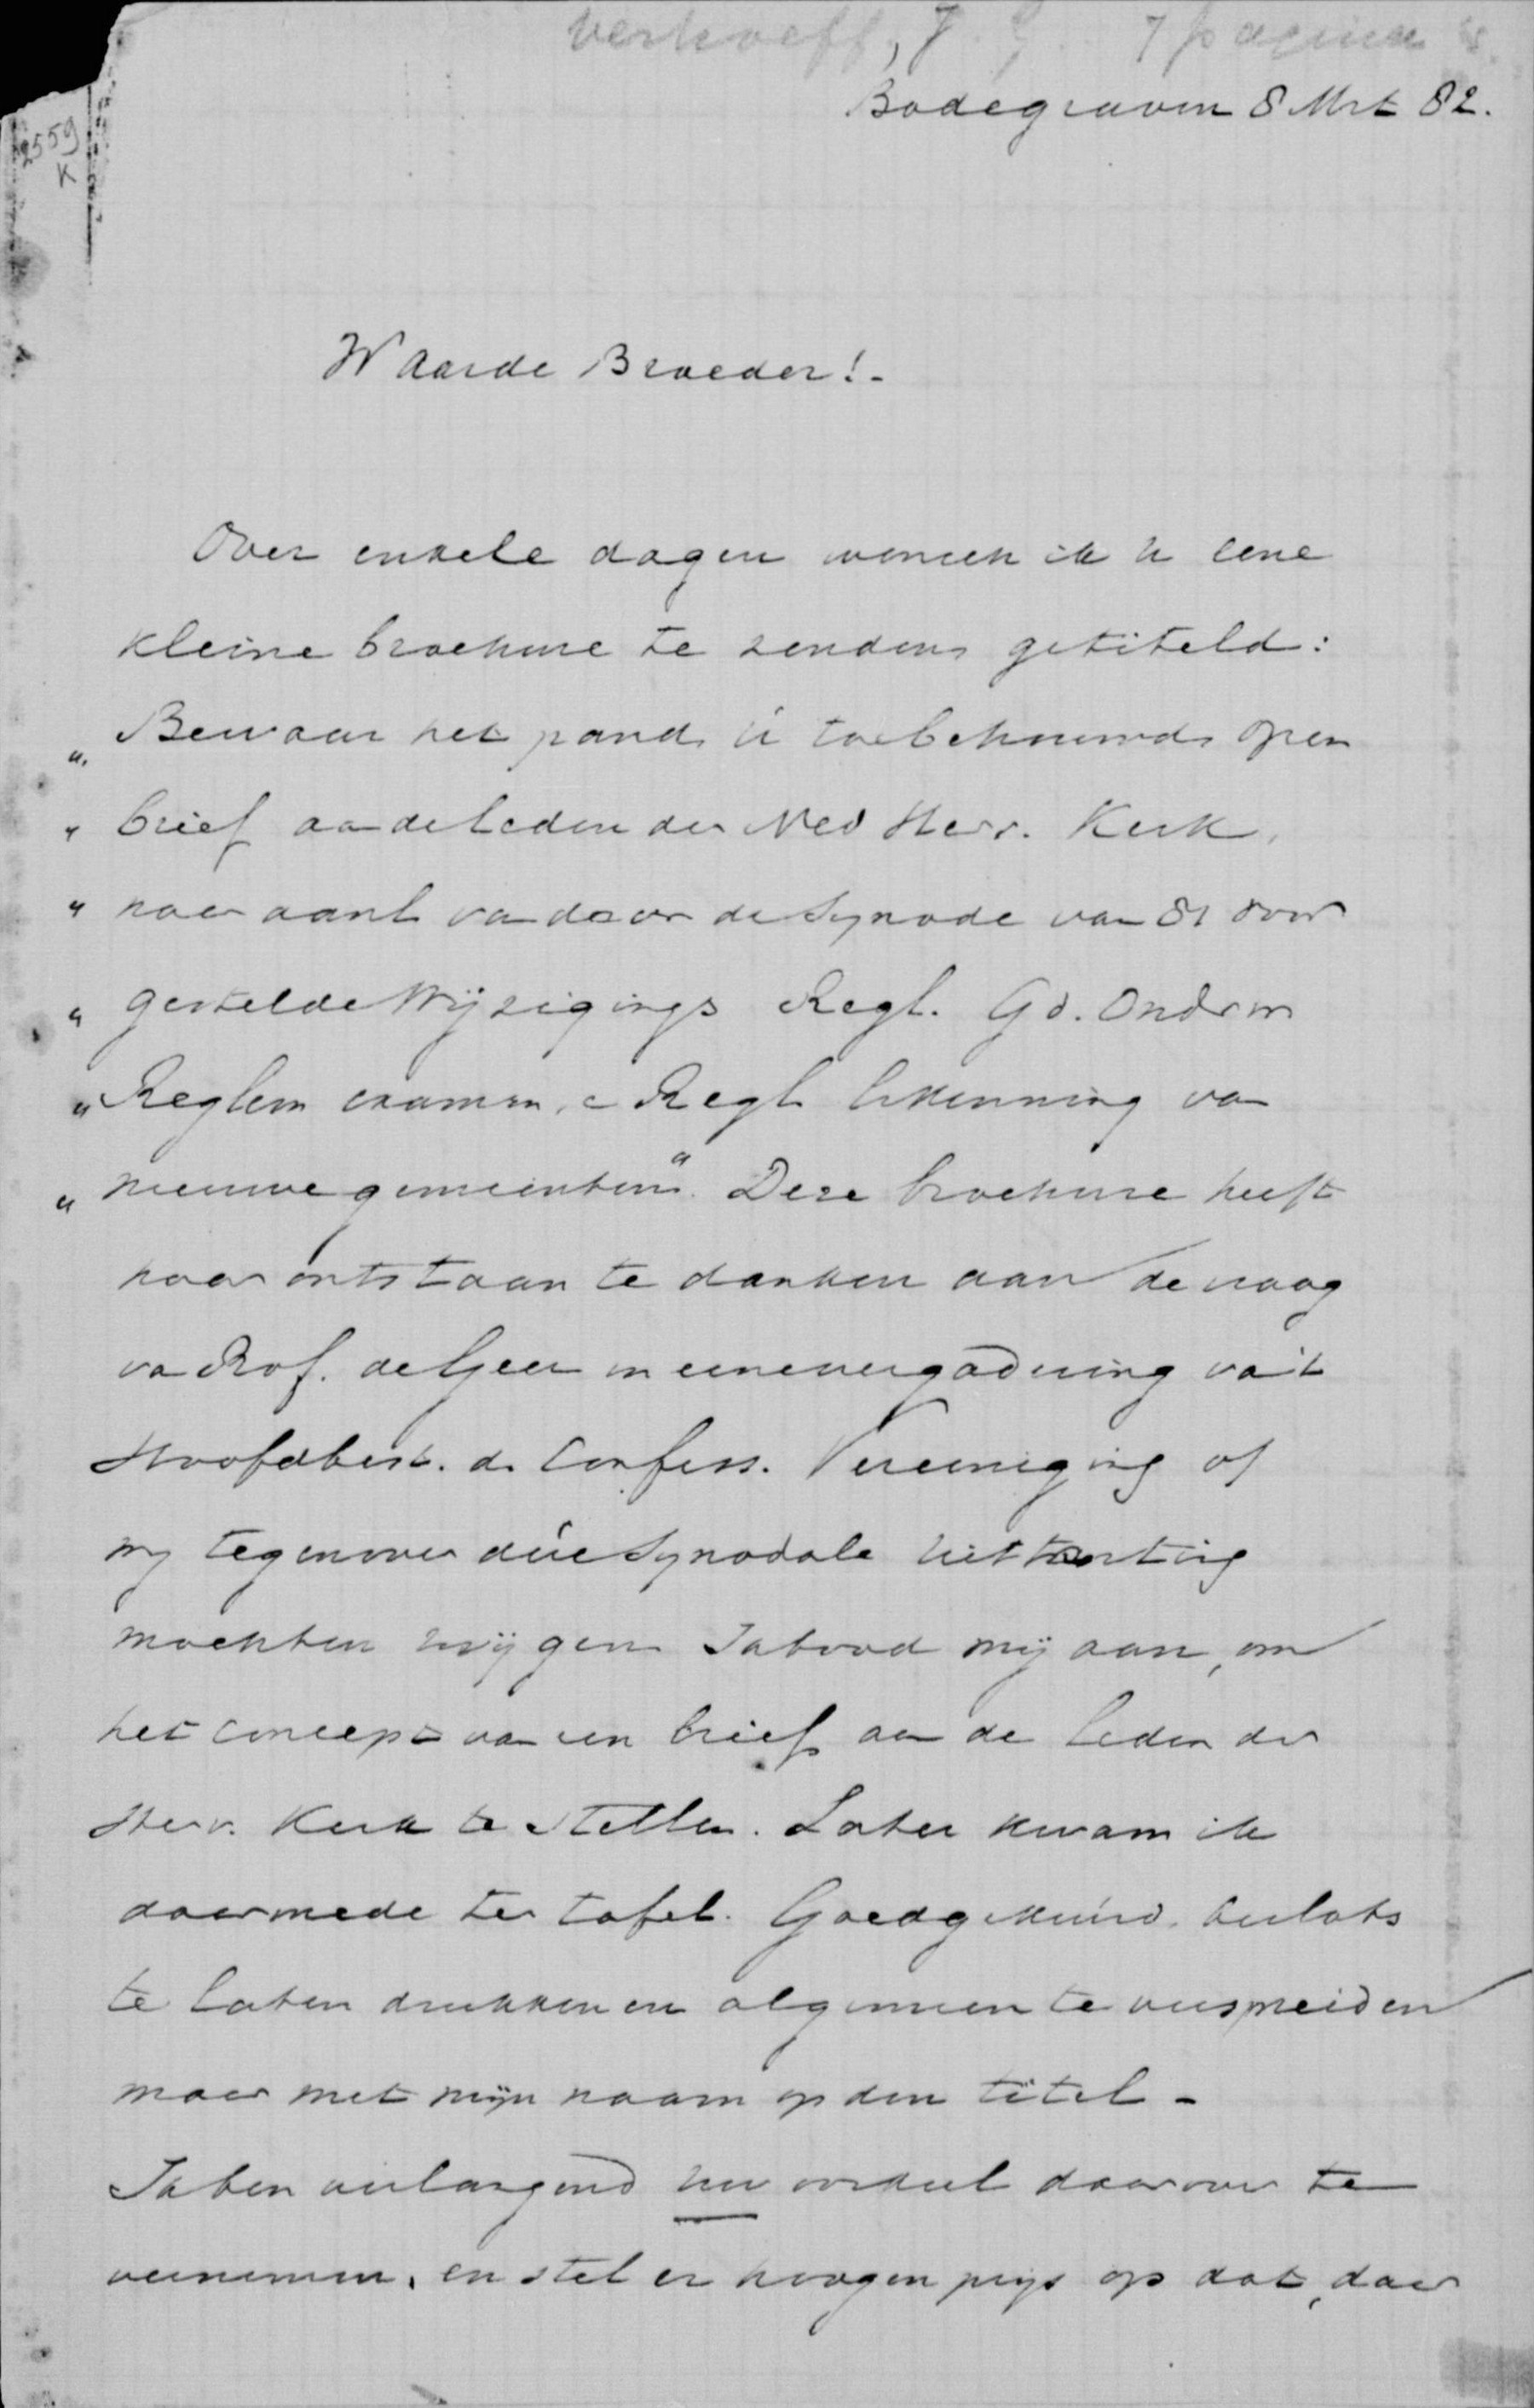 Verhoeff, J. G. 7 pagina's.
Bodegraven 8 Mrt 82.
2559
K
Waarde Broeder!-
Over enkele dagen wensch ik U eene
kleine brochure te zenden getiteld:
„ Bewaar het pand ú toebetrouwd. Open
„ brief aan de leden der Ned Herv. Kerk,
„ naar aanl van de door de Synode van 81 voor
„ gestelde Wijzigings Regl. Gd. Onderw
„ Reglem examen, en Regl erkenning van
„ nieuwe gemeenten". Deze brochure heeft
haar ontstaan te danken aan de vraag
van Prof. de Geer in eene vergadering van 't
Hoofdbest. der Confess. Vereeniging of
wij tegenover díe Synodale uittarting
mochten zwijgen. Ik bood mij aan, om
het concept van een brief aan de leden der
Herv. Kerk te stellen. Later kwam ik
daarmede ter tafel. Goedgekeurd. besloten
te laten drukken en algemeen te verspreiden
maar met mijn naam op den titel -
Ik ben verlangend uw oordeel daarover te
vernemen, en stel er hoogen prijs op dat, daar